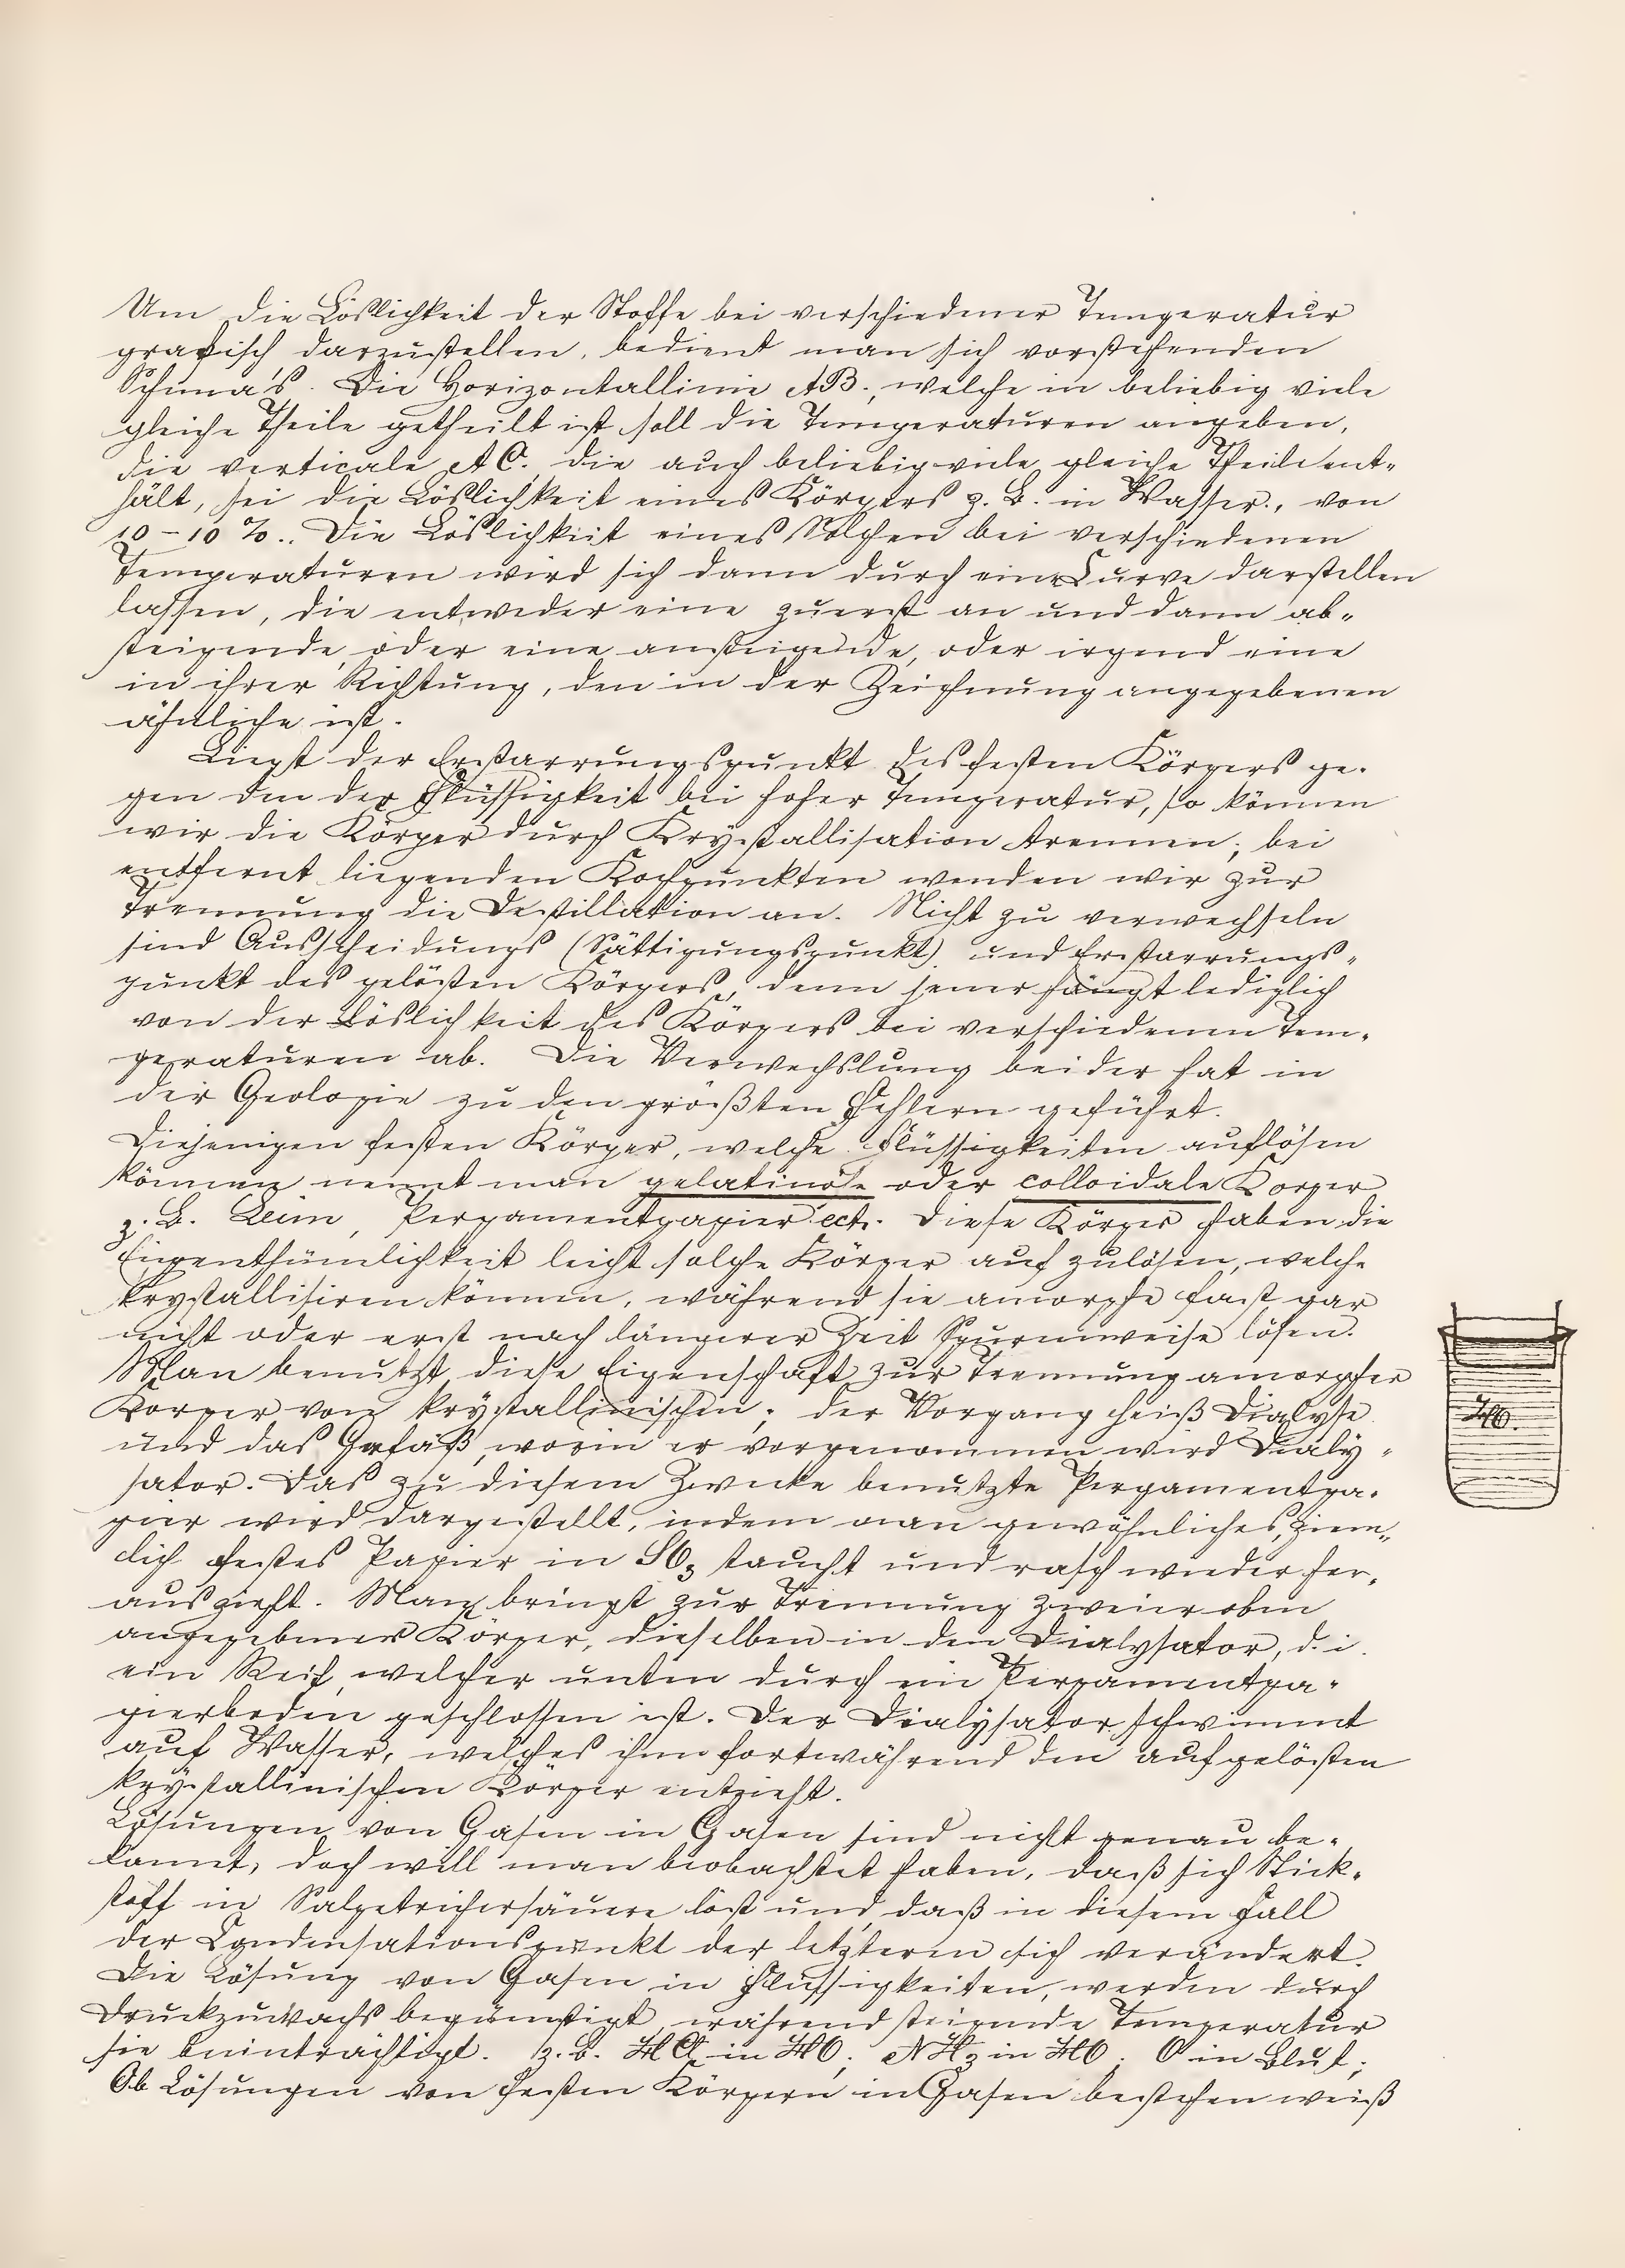 Um die Löslichkeit der Stoffe bei verschiedener Temperatur
grafisch darzustellen, bedient man sich vorstehenden
Schema's. Die Horizontallinie AB., welche in beliebig viele
gleiche Theile getheilt ist soll die Temperaturen angeben,
die verticale AC. die auch beliebig viele gleiche Theile ent-
hält, sei die Löslichkeit eines Körpers z. B. in Wasser., von
10-10 %.. Die Löslichkeit eines Solchen bei verschiedenen
Temperaturen wird sich dann durch eine Curve darstellen
lassen, die entweder eine zuerst an und dann ab-
steigende, oder eine ansteigende, oder irgend eine
in ihrer Richtung, den in der Zeichnung angegebenen
ähnliche ist.
Liegt der Erstarrungspunkt des festen Körpers ge-
gen den der Flüssigkeit bei hoher Temperatur, so können
wir die Körper durch Krystallisation trennen; bei
entfernt liegenden Kochpunkten wenden wir zur
Trennung die Destillation an. Nicht zu verwechseln
sind Ausscheidungs (Sättigungspunkt) und Erstarrungs-
punkt des gelösten Körpers, denn jener hängt lediglich
von der Löslichkeit des Körpers bei verschiedenen Tem-
peraturen ab. Die Verwechslung beider hat in
der Geologie zu den größten Fehlern geführt.
Diejenigen festen Körper, welche Flüssigkeiten auflösen
können nennt man gelatinöse oder colloidale Körper
z. B. Leim, Pergamentpapier ect. Diese Körper haben die
Eigenthümlichkeit leicht solche Körper aufzulösen, welche
krystallisiren können, während sie amorphe fast gar
nicht oder erst nach längerer Zeit Spurenweise lösen.
Man benutzt diese Eigenschaft zur Trennung amorpher
Körper von krystallinischen; der Vorgang heiß Dialyse
und das Gefäß, worin er vorgenommen wird Dialy-
sator. Das zu diesem Zwecke benutzte Pergamentpa-
pier wird dargestellt, indem man gewöhnliches, ziem-
lich festes Papier in SO3 taucht und rasch wieder her-
auszieht. Man bringt zur Trennung zweier oben
angegebener Körper, dieselben in den Dialysator, d. i.
ein Reif, welcher unten durch ein Pergamentpa-
pierboden geschlossen ist. Der Dialysator schwimmt
auf Wasser, welches ihm fortwährend den aufgelösten
krystallinischen Körper entzieht.
HO.
Lösungen von Gasen in Gasen sind nicht genau be-
kannt, doch will man beobachtet haben, daß sich Stick-
stoff in Salpetrichersäuere löst und daß in diesem Fall
der Condensationspunkt der letzteren sich verändert.
Die Lösung von Gasen in Flüssigkeiten, werden durch
Druckzuwachs begünstigt, während steigende Temperatur
sie beinträchtigt. z. B. HCl in HO; NH3 in HO; O in Blut;
Ob Lösungen von festen Körpern in Gasen bestehen weiß